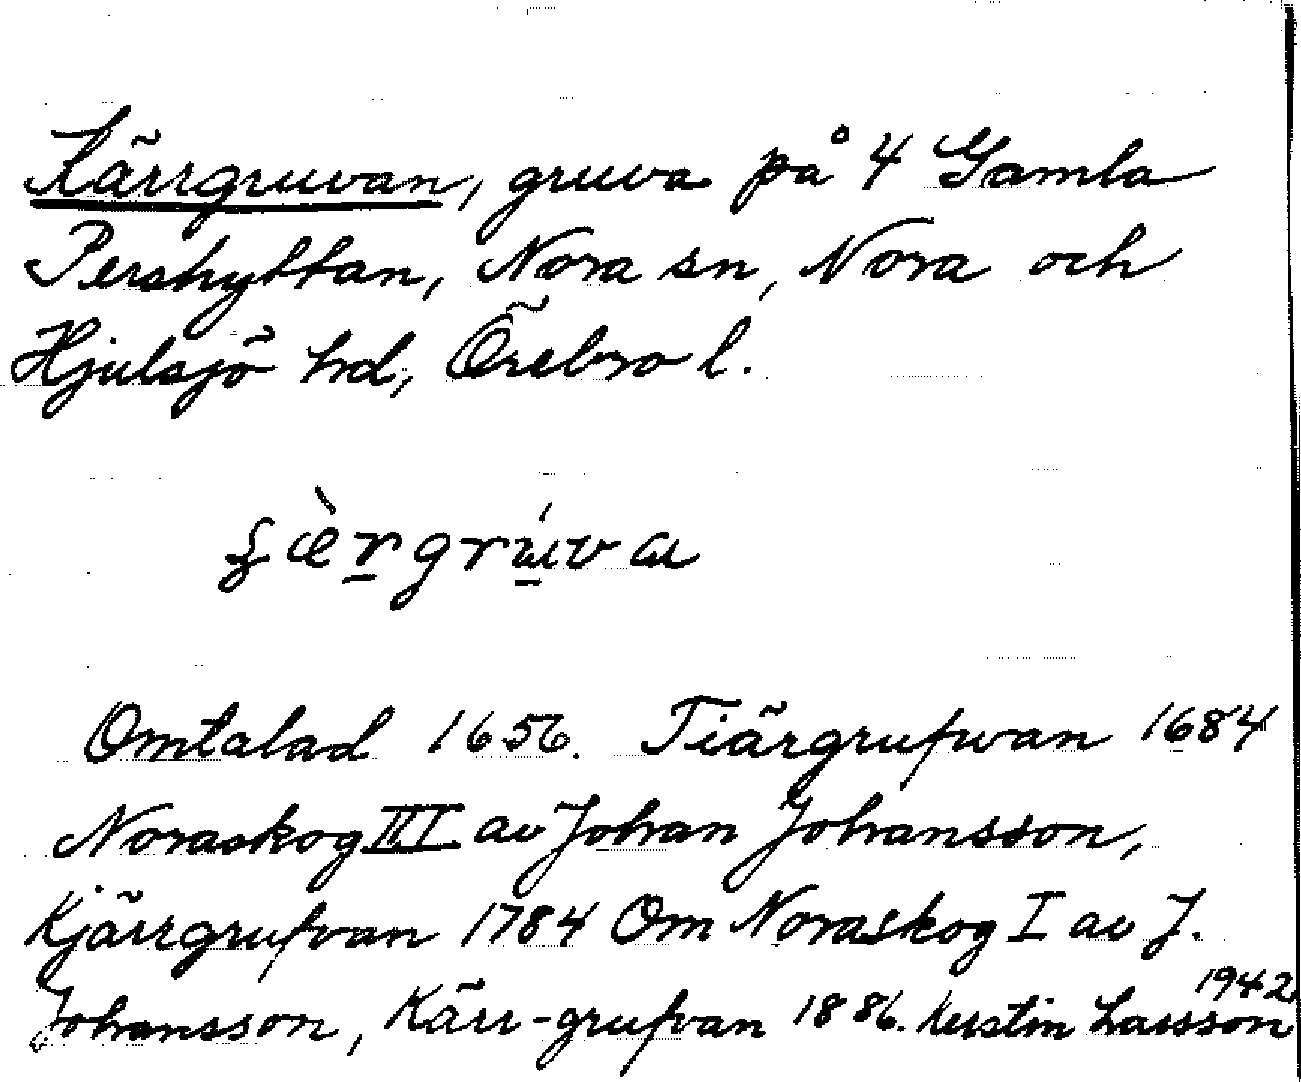 Kärrgruvan, gruva på 4 Gamla
Pershyttan, Nora sn, Nora och
Hjulsjö hd, Örebro l.
Omtalad 1656. Tiärgrufwan 1684
Noraskog III av Johan Johansson,
Kjärrgrufvan 1784 Om Noraskog I av J.
Johansson, Kärr-grufvan 1886. Kerstin Larsson 1942